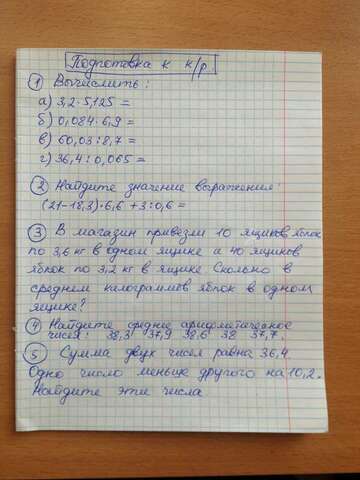 Подготовка к к/р
① Вычислить:
а) 3,2·5,125 =
б) 0,084·6,9 =
в) 60,03:8,7 =
г) 36,4:0,065 =
② Найдите значение выражения:
(21-18,3)·6,6 +3:0,6 =
③ В магазин привезли 10 ящиков яблок
по 3,6 кг в одном ящике и 40 ящиков
яблок по 3,2 кг в ящике Сколько в
среднем килограммов яблок в одном
ящике?
④ Найдите среднее арифметическое
чисел: 38,3 37,9 38,6 38 37,7.
⑤ Сумма двух чисел равна 36,4
Одно число меньше другого на 10,2.
Найдите эти числа